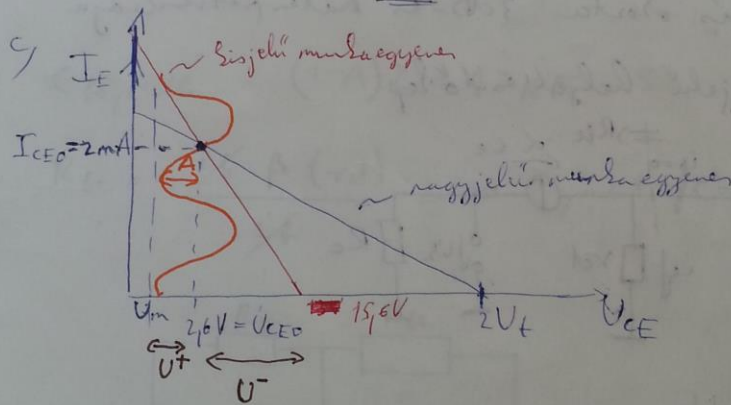 c)
I_E
kisjelű munkaegyenes
I_CE0=2mA
A
nagyjelű munkaegyenes
U_m
2,6V = U_CE0
15,6V
2U_t
U_CE
U^+
U^-